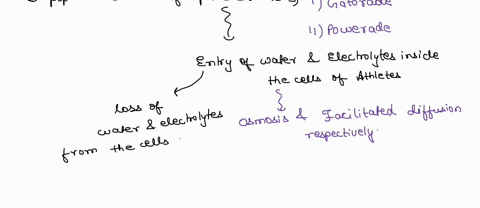 i) Gatorade
ii) Powerade
Entry of water & Electrolytes inside
the cells of Athletes
loss of
water & electrolytes
from the cells.
osmosis & Facilitated diffusion
respectively.